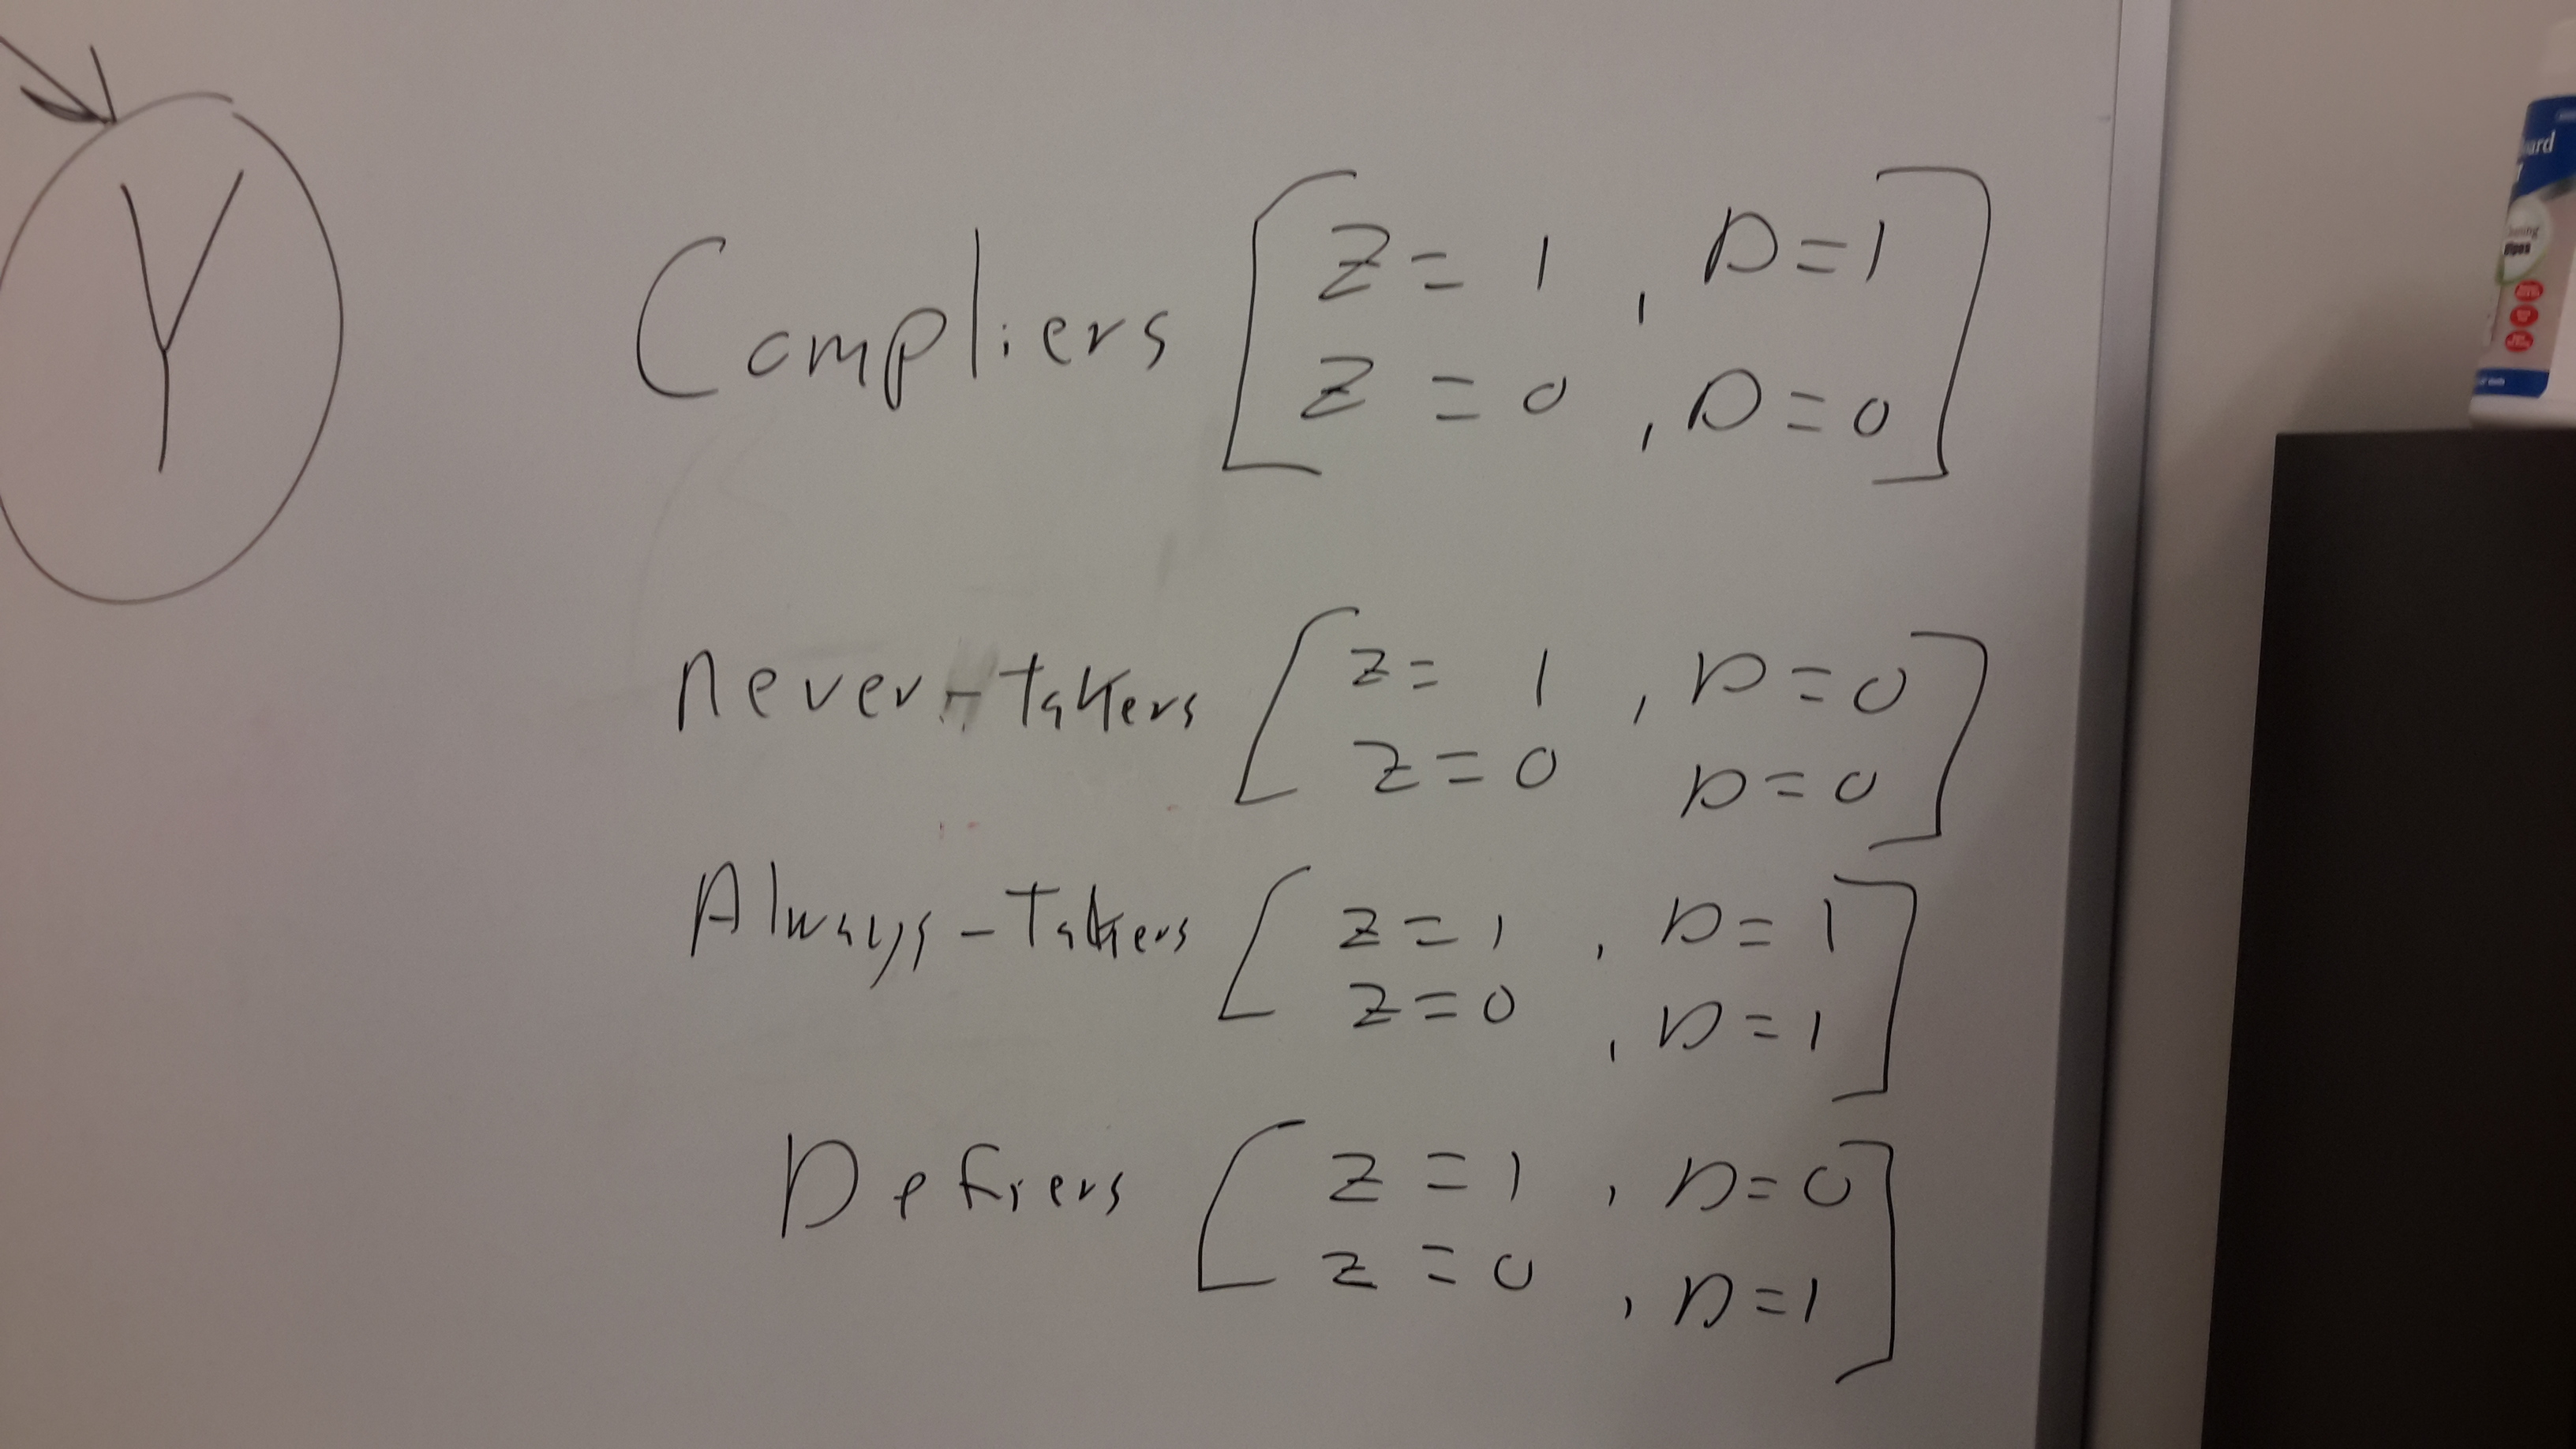 Y
Compliers [ Z = 1 , D = 1 ]
Z = 0 , D = 0
never-takers [ z = 1 , D = 0 ]
z = 0 D = 0
Always-Takers [ z = 1 , D = 1 ]
z = 0 , D = 1
Defiers [ z = 1 , D = 0 ]
z = 0 , D = 1